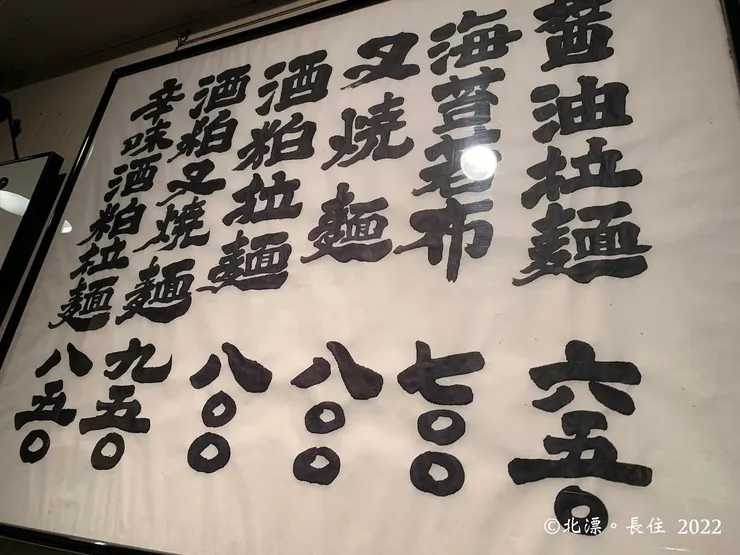 醤油拉麺 六五〇
海苔若布 七〇〇
叉焼麺 八〇〇
酒粕拉麺 八〇〇
酒粕叉焼麺 九五〇
辛味酒粕拉麺 八五〇
©北漂。長住 2022